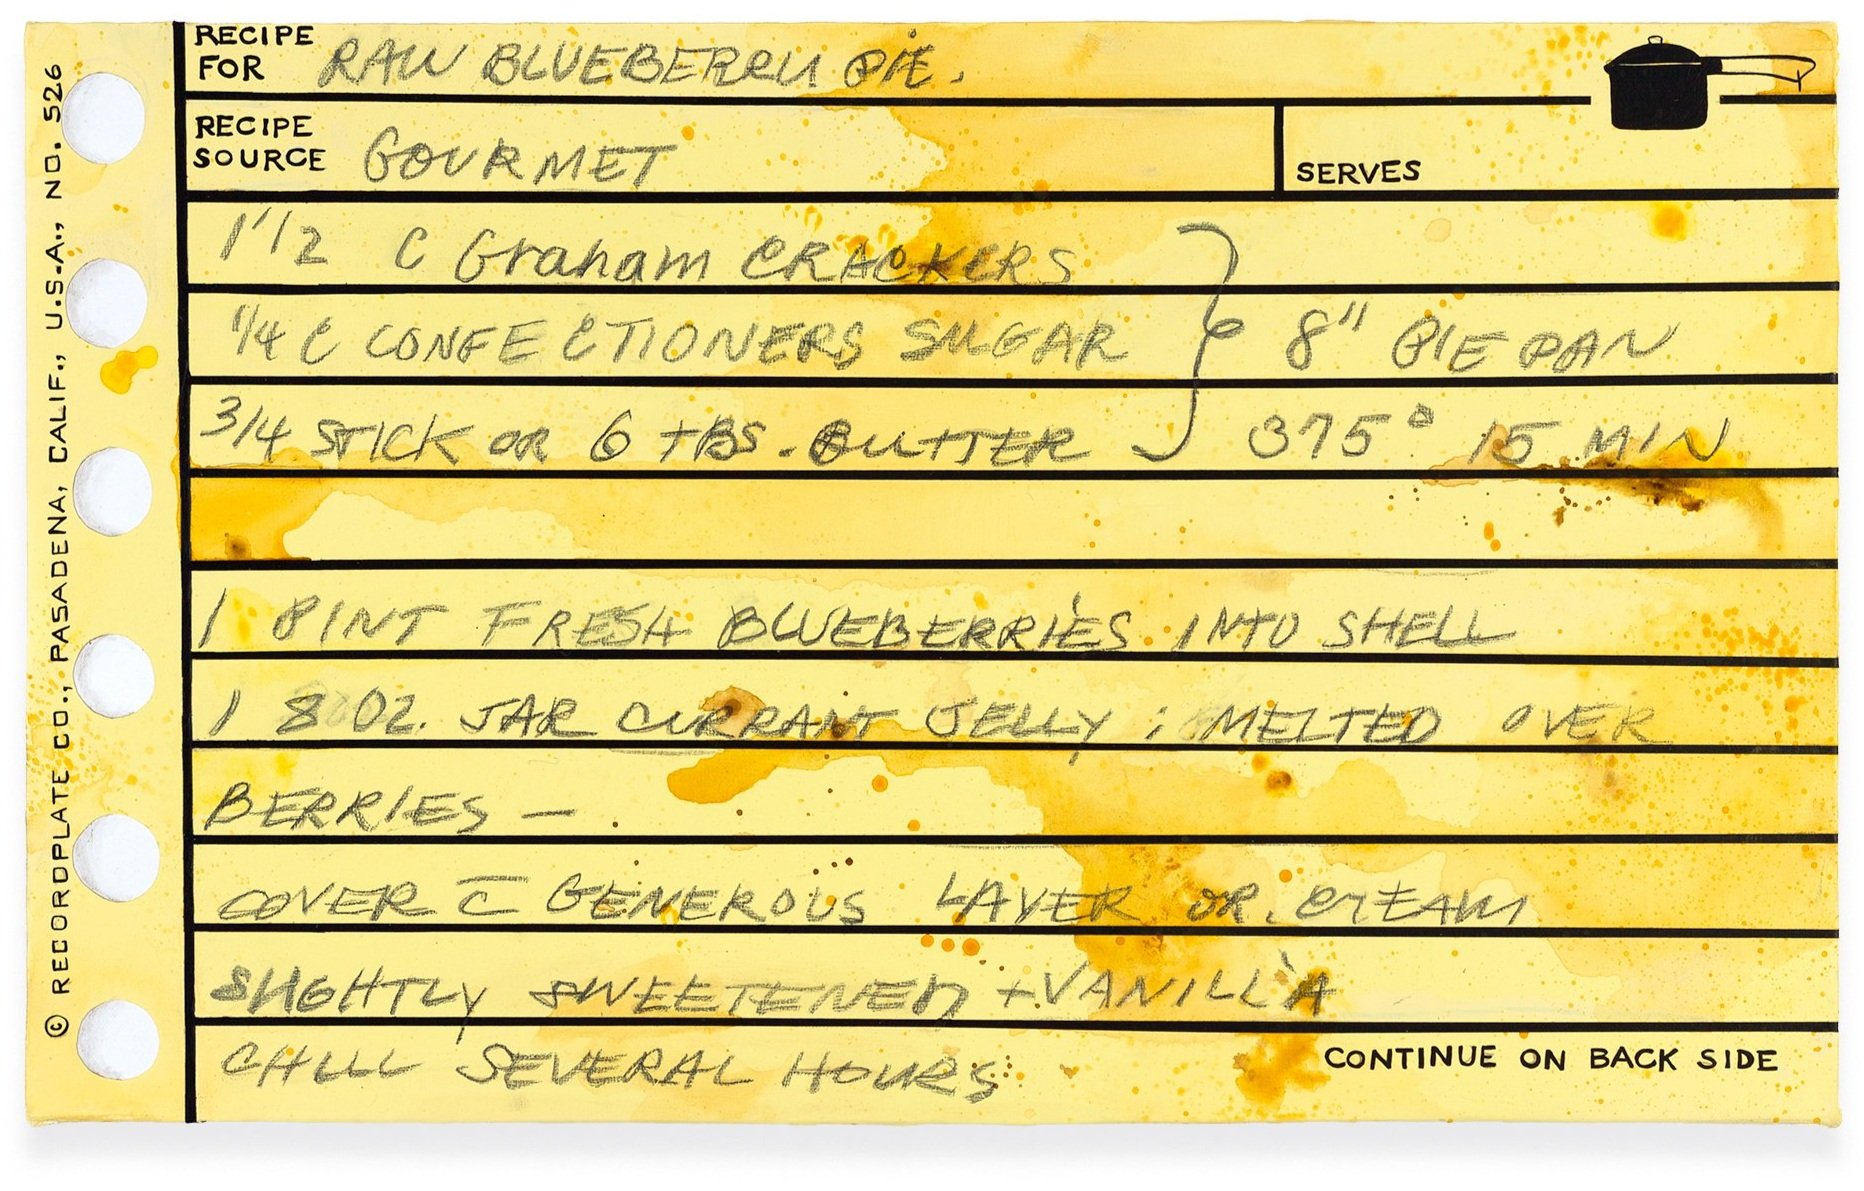 © RECORDPLATE CO., PASADENA, CALIF., U.S.A., NO. 526
RECIPE FOR RAW BLUEBERRY PIE.
RECIPE SOURCE GOURMET
SERVES
1 1/2 C Graham CRACKERS
1/4 C CONFECTIONERS SUGAR } 8" PIE PAN
3/4 STICK OR 6 TBS. BUTTER 375° 15 MIN
1 PINT FRESH BLUEBERRIES INTO SHELL
1 8 OZ. JAR CURRANT JELLY; MELTED OVER
BERRIES —
COVER c̄ GENEROUS LAYER OR. CREAM
SLIGHTLY SWEETENED + VANILLA
CHILL SEVERAL HOURS
CONTINUE ON BACK SIDE